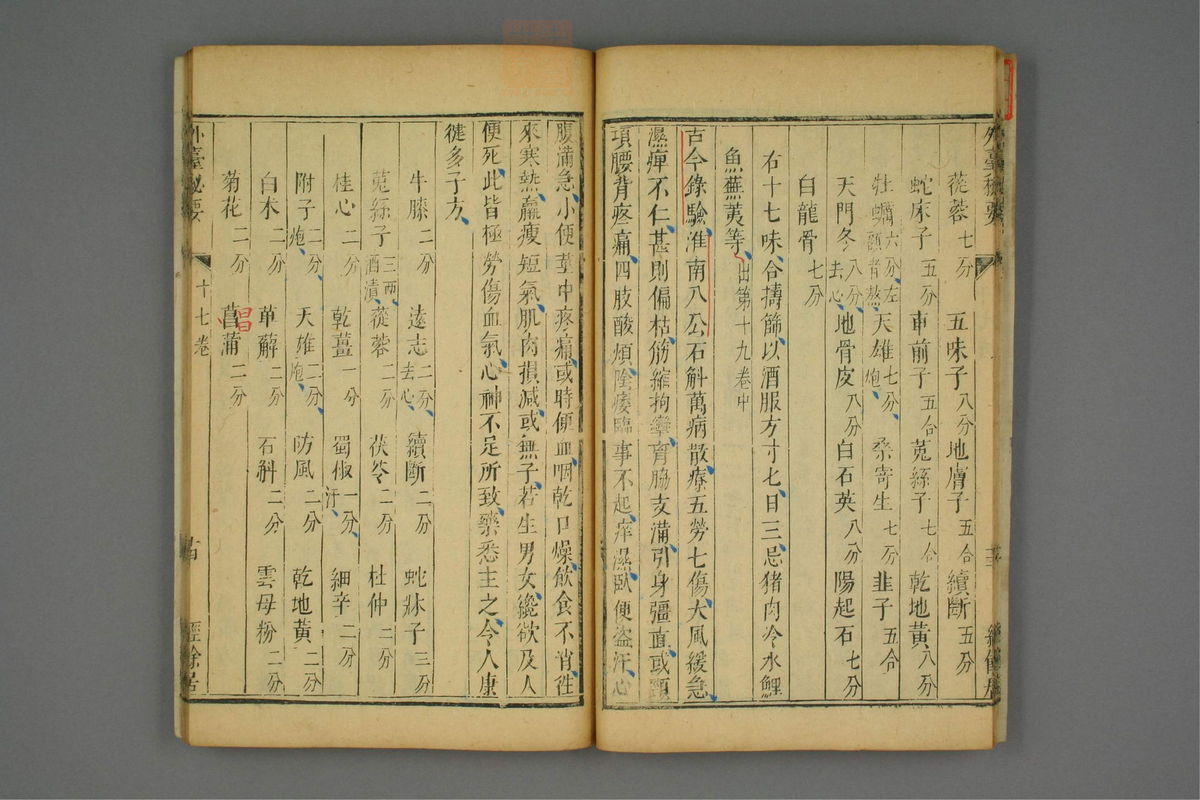 外臺秘要
蓯蓉七分 五味子八分 地膚子五合 續斷五分
蛇床子五分 車前子五合 菟絲子七合 乾地黃八分
牡蠣六分左顧者熬 天雄七分炮 桑寄生七分 韭子五合
天門冬八分去心 地骨皮八分 白石英八分 陽起石七分
白龍骨七分
右十七味合擣篩以酒服方寸匕日三忌猪肉冷水鯉
魚蕪荑等出第十九卷中
古今錄驗淮南八公石斛萬病散療五勞七傷大風緩急
濕痺不仁甚則偏枯筋縮拘攣胷脇支滿引身彊直或頸
項腰背疼痛四肢酸煩陰痿臨事不起痒濕臥便盗汗心
腹滿急小便莖中疼痛或時便血咽乾口燥飲食不消往
來寒熱羸瘦短氣肌肉損減或無子若生男女纔欲及人
便死此皆極勞傷血氣心神不足所致藥悉主之令人康
健多子方
牛膝二分 遠志二分去心 續斷二分 蛇牀子三分
菟絲子三兩酒漬 蓯蓉二分 茯苓二分 杜仲二分
桂心二分 乾薑一分 蜀椒一分汗 細辛二分
附子二分炮 天雄二分炮 防風二分 乾地黃二分
白术二分 萆薢二分 石斛二分 雲母粉二分
菊花二分 菖蒲二分
外臺秘要 十七卷 十四 經餘居